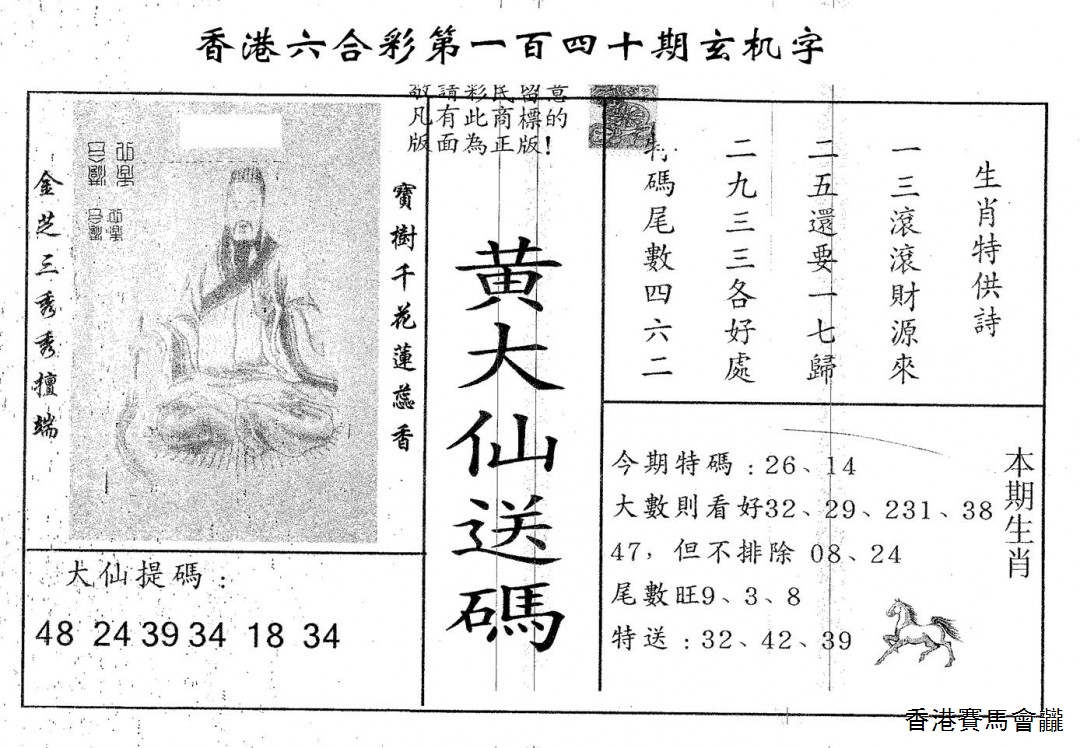 香港六合彩第一百四十期玄机字
敬請彩民留意
凡有此商標的
版面為正版!
金芝三秀秀擅端
寶樹千花蓮蕊香
黄大仙送碼
生肖特供詩
一三滾滾財源來
二五還要一七歸
二九三三各好處
特碼尾數四六二
大仙提碼:
48 24 39 34 18 34
本期生肖
今期特碼:26、14
大數則看好32、29、231、38
47,但不排除 08、24
尾數旺9、3、8
特送:32、42、39
香港賽馬會